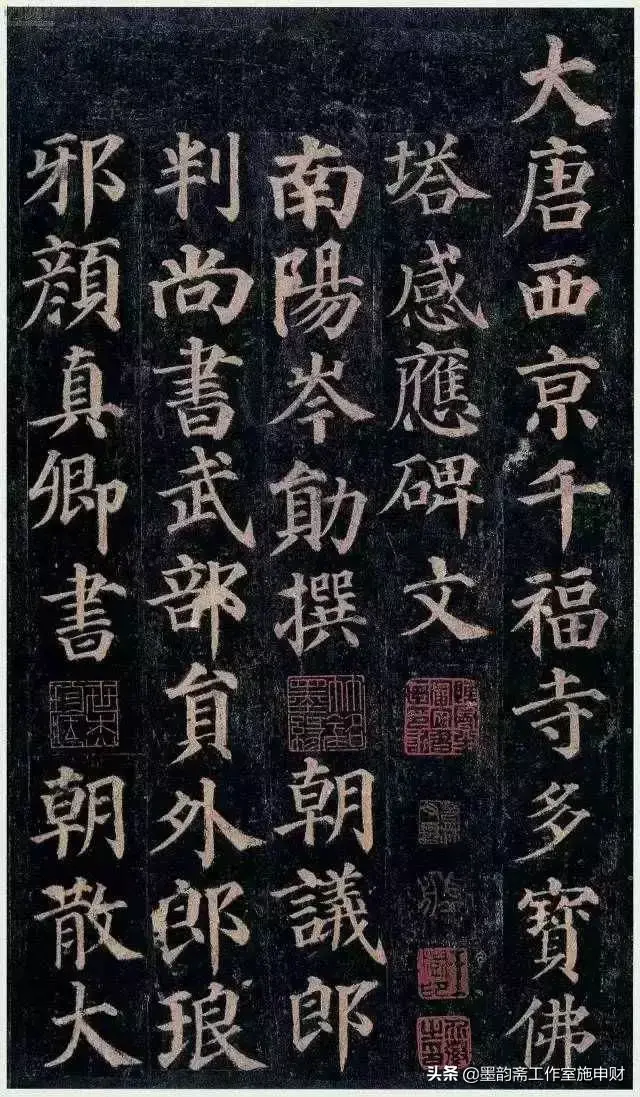 大唐西京千福寺多寶佛
塔感應碑文
南陽岑勛撰 朝議郎
判尚書武部貟外郎琅
邪顏真卿書 朝散大
头条 @墨韵斋工作室施申财